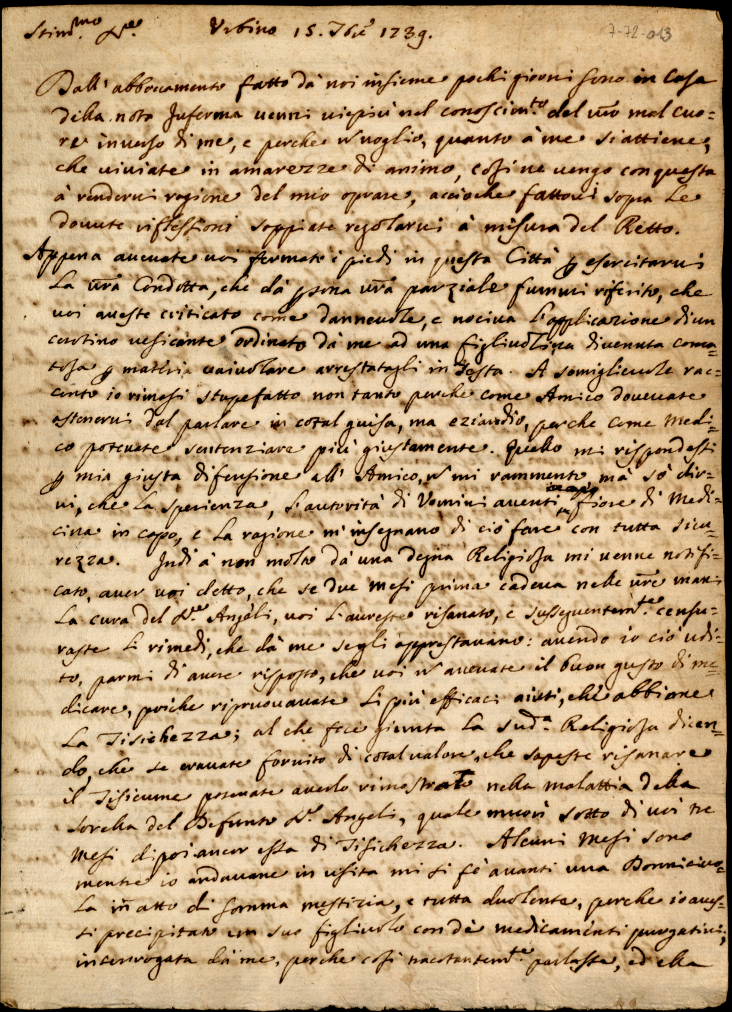 Stim.mo Sre. Urbino 15. 7bre 1739. 7-72-013
Dall' abboccamento fatto dà noi insieme pochi giorni sono in Casa
della nota Inferma venni viepiù nel conoscim.to del vro mal cuo-
re inverso di me, e perche ñ voglio, quanto à me si attiene,
che viviate in amarezze di animo, così ne vengo con questa
à rendervi ragione del mio oprare, accioche fattovi sopra le
dovute riflessioni sappiate regolarvi à misura del Retto.
Appena avevate voi fermato i piedi in questa Città p esercitarvi
la vrà Condotta, che dà psona vrà parziale fummi riferito, che
voi aveste criticato come dannevole, e nociva l'applicazione di un
cerotino vesicante ordinato dà me ad una figliuolina divenuta coma-
tosa p materia vaivolare arrestatagli in Testa. A somiglievole rac-
conto io rimasi stupefatto non tanto perche come Amico dovevate
astenervi dal parlare in cotal guisa, ma eziandio, perche come Medi-
co potevate sentenziare più giustamente. Quello mi rispondesti
p mia giusta difensione all' Amico, ñ mi rammento, mà sò dir-
vi, che la sperienza, l'autorità di Uomini aventi fiore di Medi-
cina in capo, e la ragione m'insegnano di ciò fare con tutta sicu-
rezza. Indi à non molto dà una degna Religiosa mi venne notifi-
cato, aver voi detto, che se due mesi prima cadeva nelle vre mani
la cura del Sre Angeli, voi l'avreste risanato, e sussequentem.te censu-
raste li rimedi, che dà me se gli apprestavano: avendo io ciò udi-
to, parmi di avere risposto, che voi ñ avevate il buon gusto di me-
dicare, poiche riprovavate li più efficaci aiuti, che abbiane
la Tisichezza; al che fece giunta la sud.a Religiosa dicen-
do, che se eravate fornito di cotal valore, che sapeste risanare
il Tisicume potevate averlo rimostrato nella malattia della
sorella del Defunto Sre Angeli, quale morì sotto di voi tre
mesi dipoi ancor essa di Tisichezza. Alcuni mesi sono
mentre io andavane in visita mi si fè avanti una Donnicivo-
la in atto di somma mestizia, e tutta dolente, perche io aves-
si precipitato un suo figliuolo con de medicamenti purgativi;
interrogata dà me, perche così tracotantem.te parlasse, ed ella